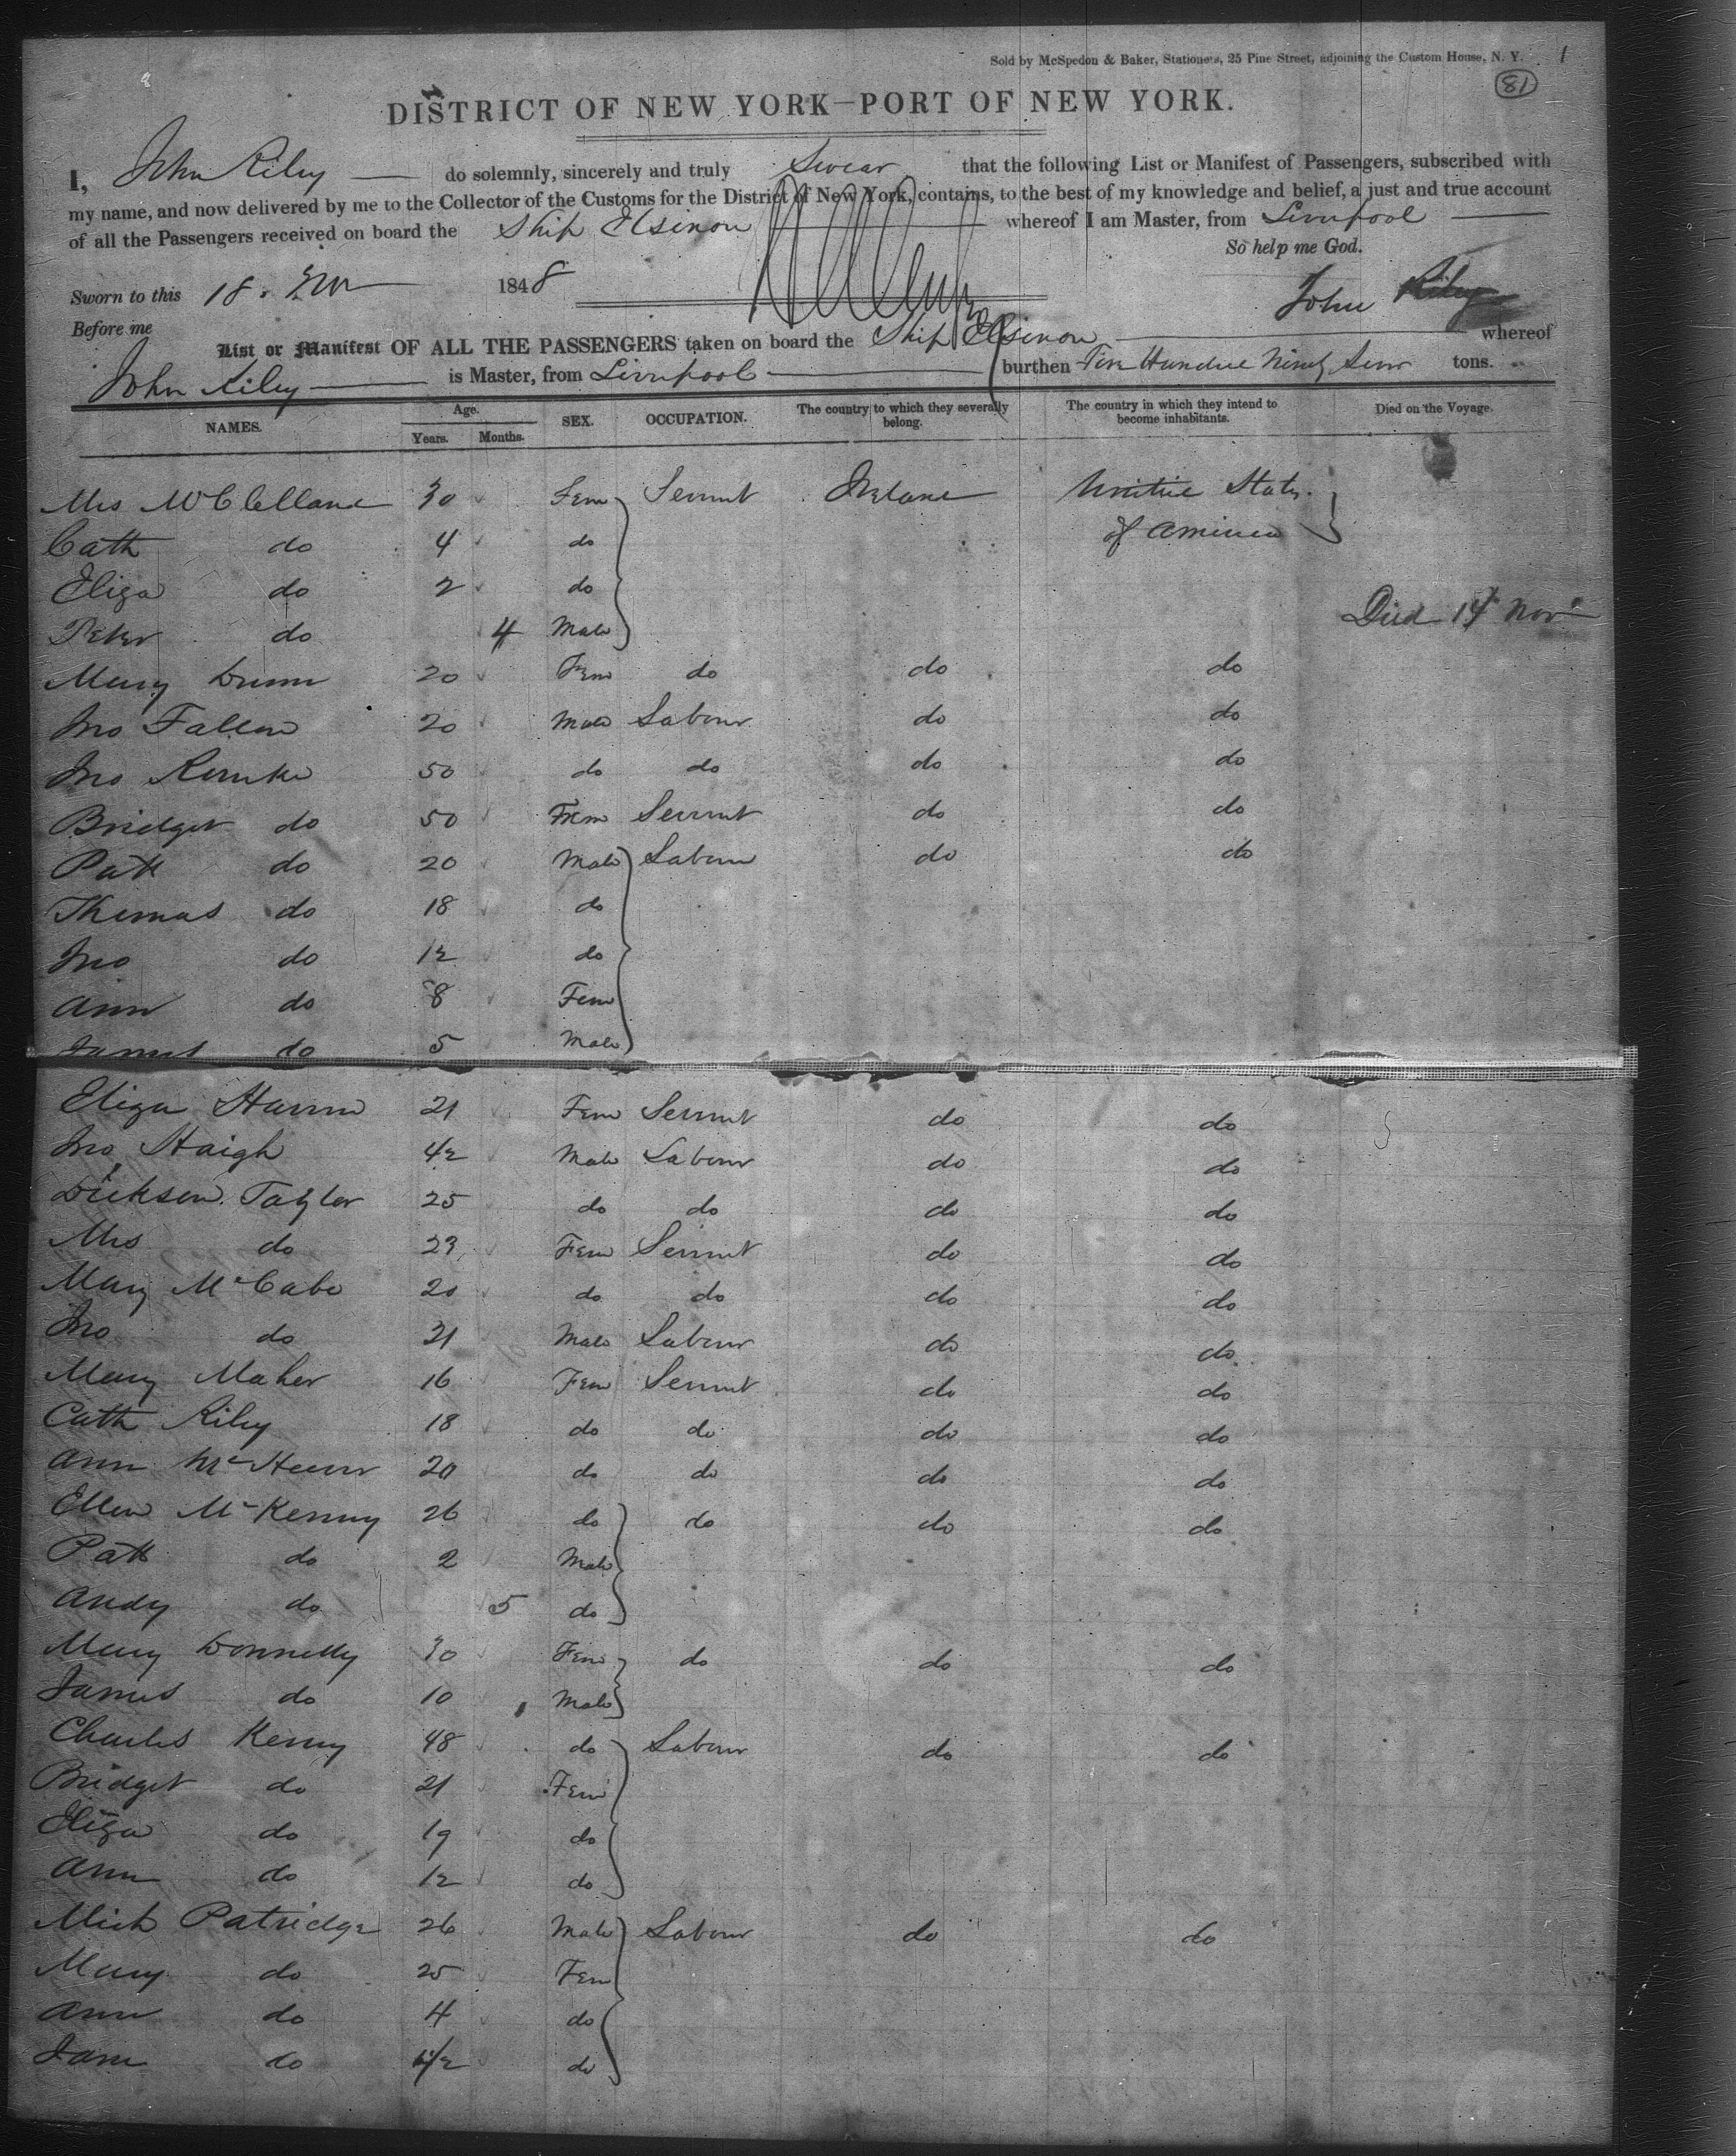 Sold by McSpedon & Baker, Stationers, 25 Pine Street, adjoining the Custom House, N. Y. 1
81
DISTRICT OF NEW YORK—PORT OF NEW YORK.
I, John Riley do solemnly, sincerely and truly Swear that the following List or Manifest of Passengers, subscribed with
my name, and now delivered by me to the Collector of the Customs for the District of New York, contains, to the best of my knowledge and belief, a just and true account
of all the Passengers received on board the Ship Elsinon whereof I am Master, from Liverpool
So help me God.
Sworn to this 18. Nov 1848
John Riley
Before me
List or Manifest OF ALL THE PASSENGERS taken on board the Ship Elsinon whereof
John Riley is Master, from Liverpool burthen Five Hundred Ninety Seven tons.
NAMES. Age. Years. Months. SEX. OCCUPATION. The country to which they severally belong. The country in which they intend to become inhabitants. Died on the Voyage.
Mrs McClelland 30 Fem Servant Ireland United States
of America
Cath do 4 do
Eliza do 2 do
Peter do 4 Male Died 14 Nov
Mary Dunn 20 Fem do do do
Jno Fallon 20 Male Labour do do
Jno 50 do do do do
Bridget do 50 Fem Servant do do
Patk do 20 Male Labour do do
Thomas do 18 do
Jno do 12 do
Ann do 8 Fem
James do 5 Male
Eliza 21 Fem Servant do do
Jno Haigh 42 Male Labour do do
Dickson Taylor 25 do do do do
Mrs do 23 Fem Servant do do
Mary McCabe 20 do do do do
Jno do 21 Male Labour do do
Mary Maher 16 Fem Servant do do
Cath Riley 18 do do do do
Ann 20 do do do do
Ellen McKenny 26 do do do do
Patk do 2 Male
Andy do 5 do
Mary Donnelly 30 Fem do do do
James do 10 Male
Charles Kenny 48 do Labour do do
Bridget do 21 Fem
Eliza do 19 do
Ann do 12 do
Mich Patridge 26 Male Labour do do
Mary do 25 Fem
Ann do 4 do
Jane do 1/2 do